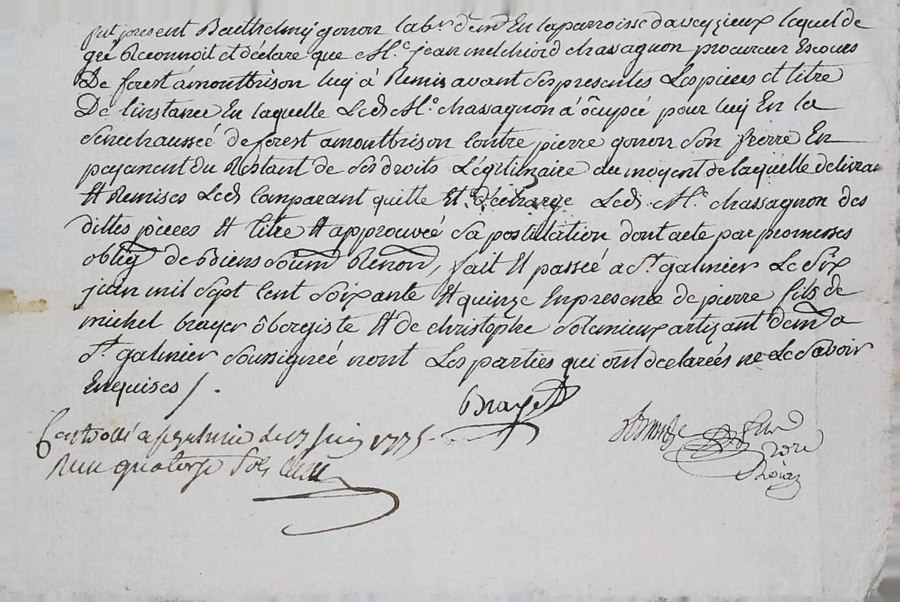 fut present Barthelmy gonon lab.r dem.t En la parroisse d'aveyzieux laquel de
gré Reconnoit et declare que M.e jean melchiord chassagnon procureur Escours
De forest a montbrison luy à Remis avant ses presentes Les pieces et titre
De l'instance En laquelle Led. M.e chassagnon à ôcupée pour luy En la
Senechaussée de forest a montbrison contre pierre gonon son frerre En
payement du Restant de ses droits Légitimaire au moyent de laquelle delivrance
Et Remises Led. Comparant quitte Et Décharge Led. M.e chassagnon des
dittes pieces Et titre Et approuvée sa postulation dont acte par promesses
oblig. de Biens soum. Renon, fait Et passée a S.t galmier Le six
juin mil sept cent soixante Et quinze En presence de pierre fils de
michel brayer ôbergiste Et de christophe solemieux artizant dem. a
S.t galmier soussignée nont Les parties qui ont declarées ne Le savoir
Enquises /.
Brayet
Controllé a st galmier le 17 juin 1775
Reçu quatorze sols